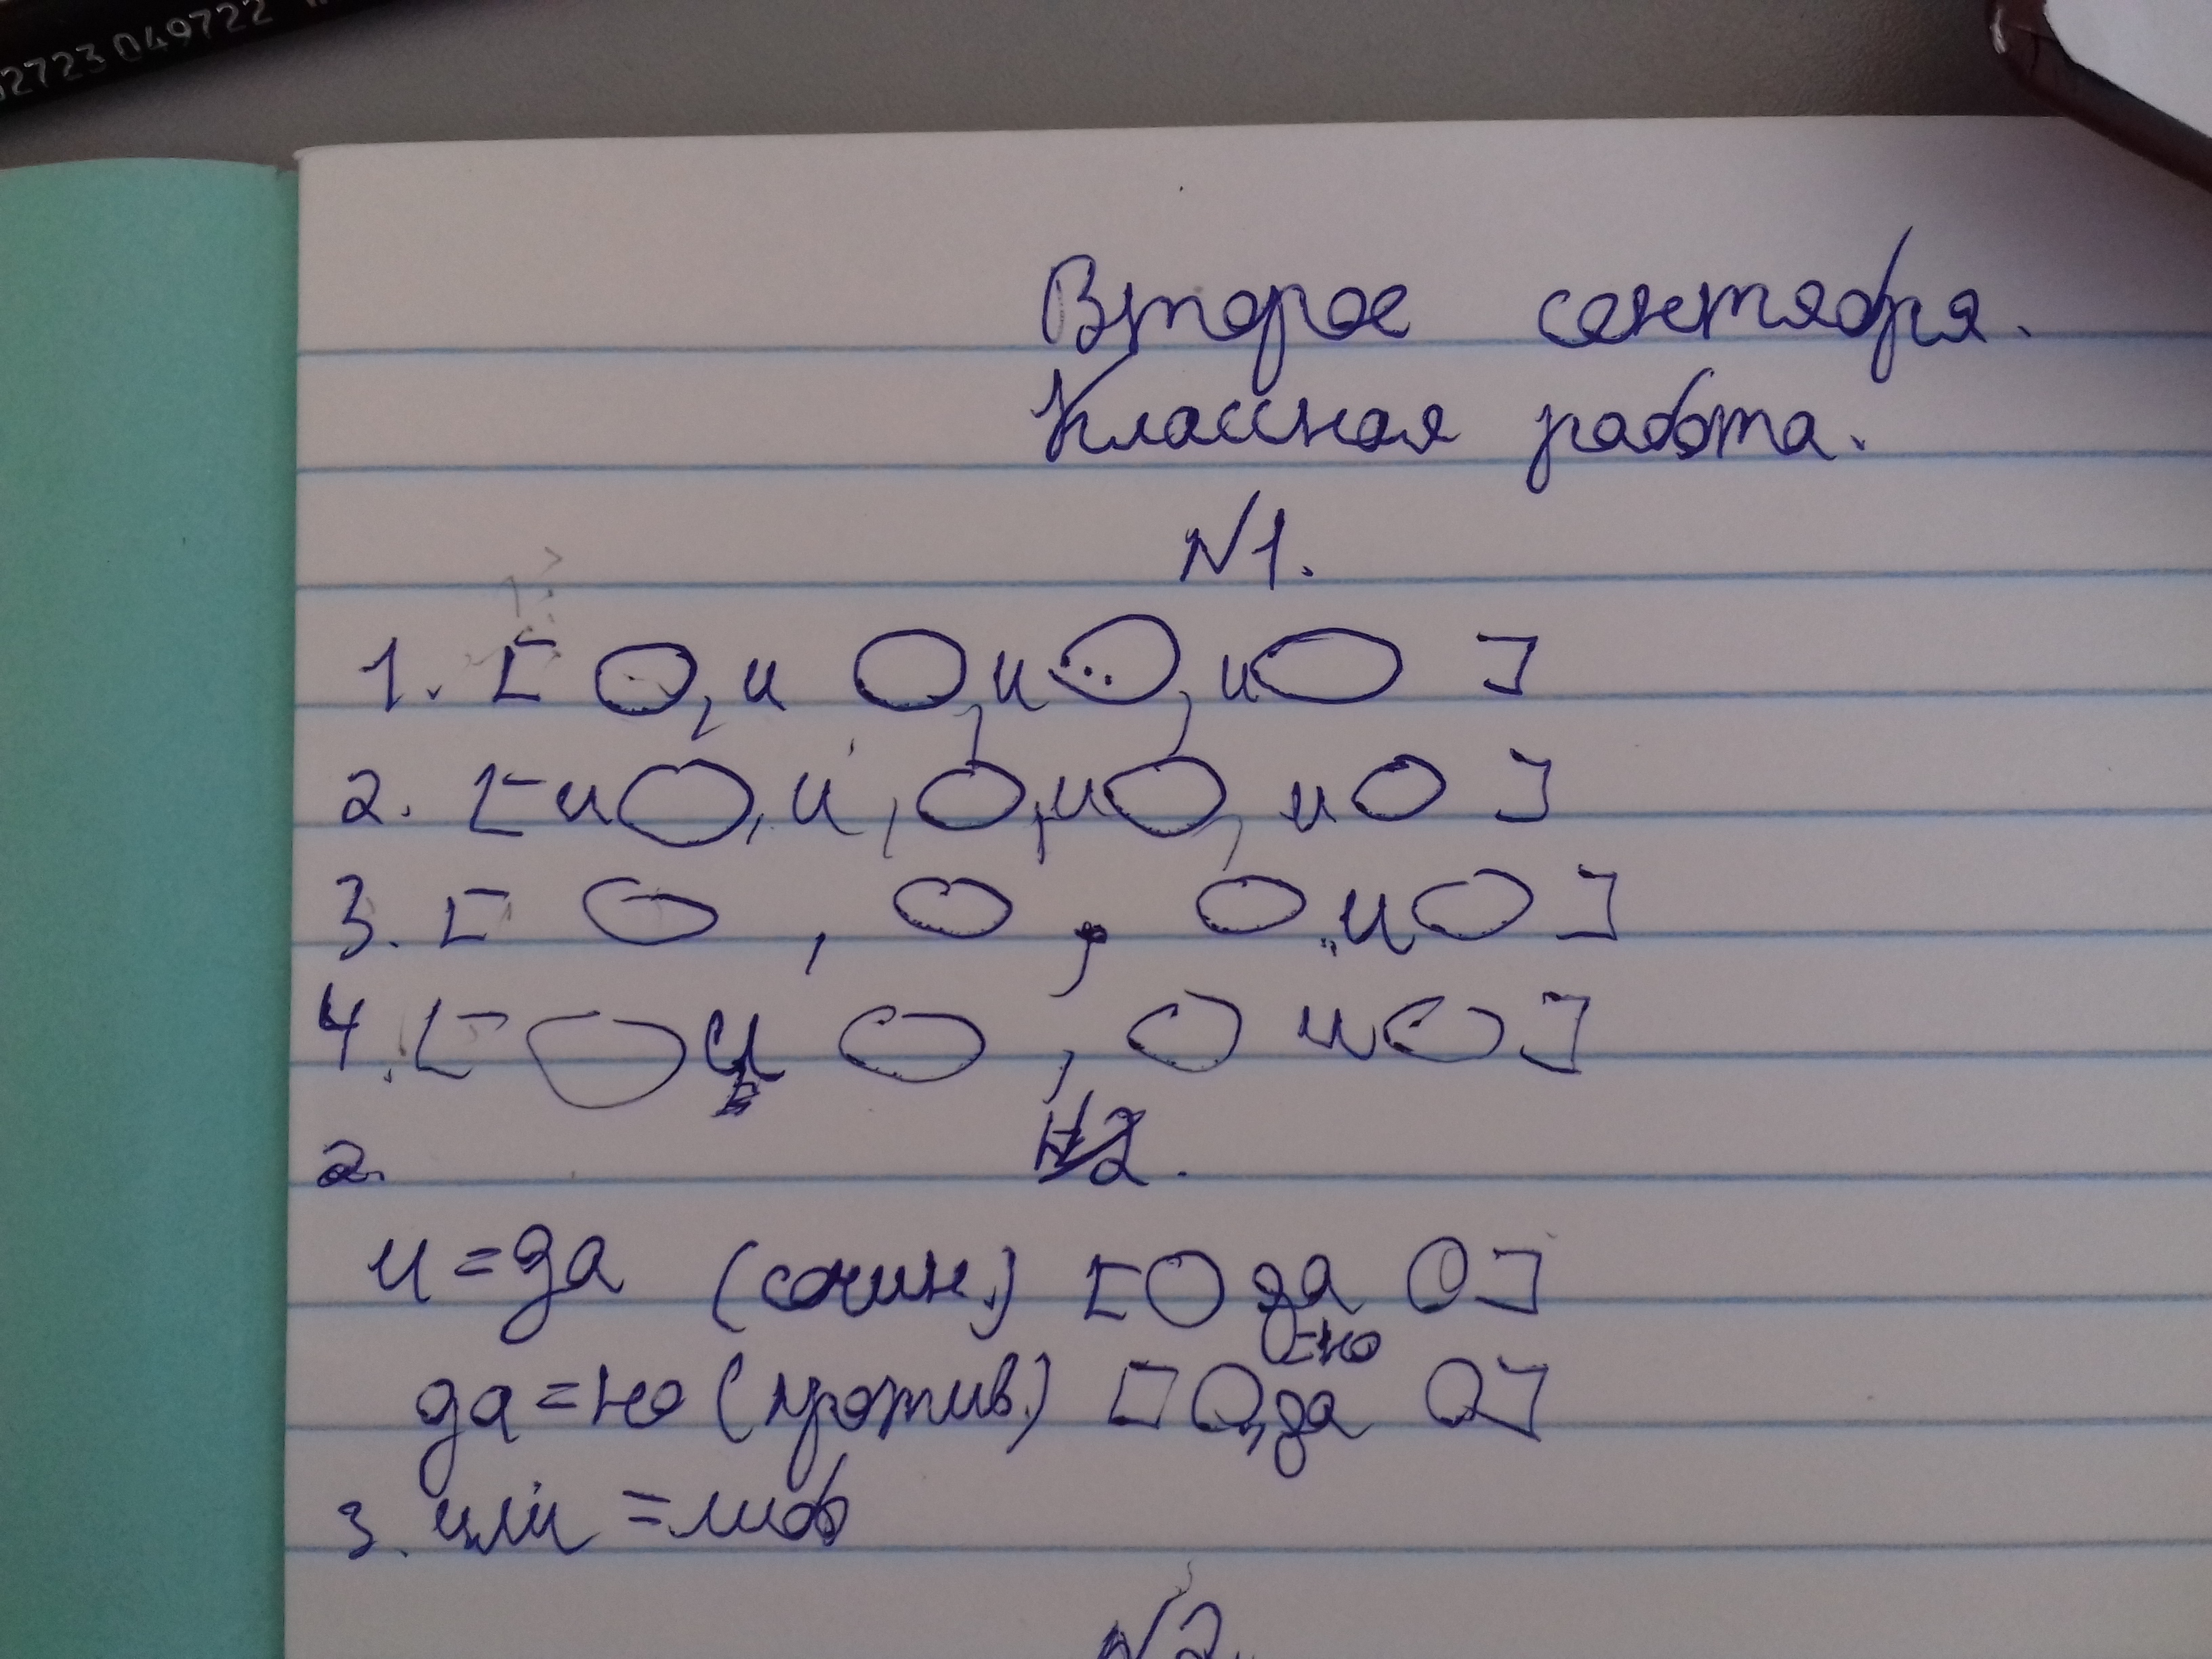 Второе сентября.
Классная работа.
N1.
1. [О, и О, и О, и О]
2. [и О, и О, и О, и О]
3. [О, О, О и О]
4. [О и О, О и О]
2.
и = да (сочин.) [О да О]
но
да = но (против.) [О, да О]
3. или = либо
N2.